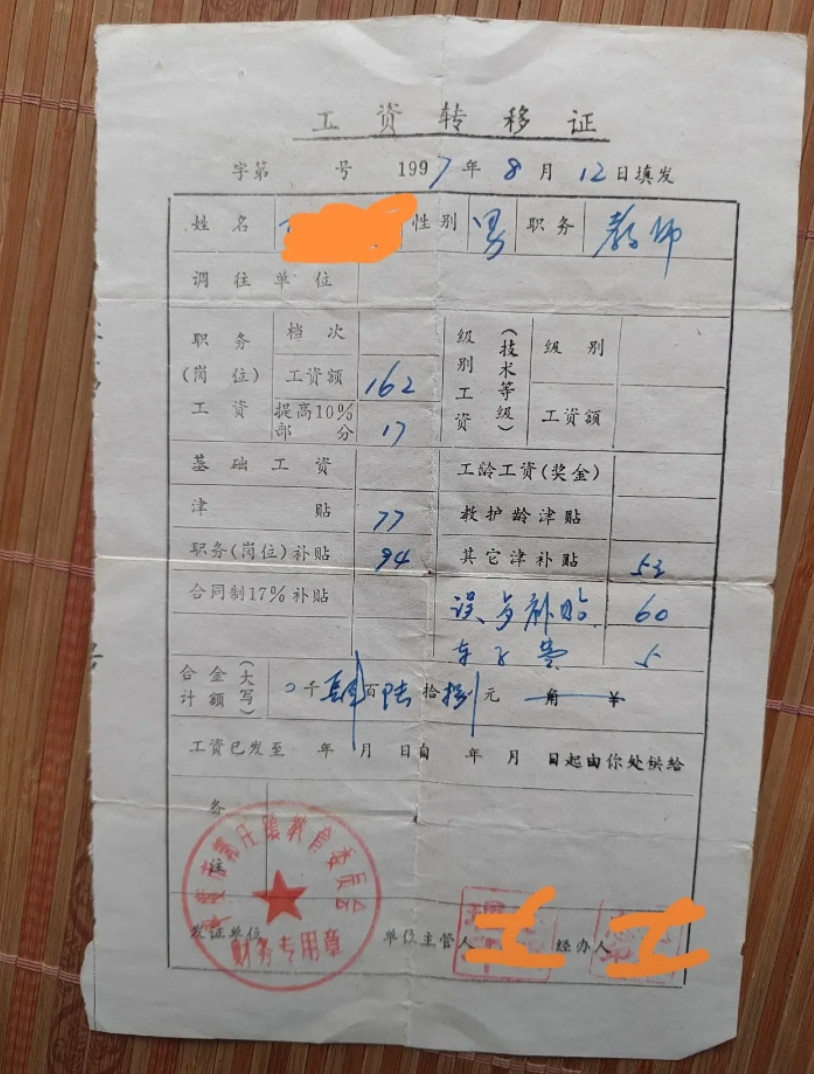 工资转移证
字第 号 1997年8月12日填发
姓名 性别 男 职务 教师
调往单位
职务(岗位)工资 档次
工资额 162
提高10%部分 17
级别工资(技术等级) 级别
工资额
基础工资 工龄工资(奖金)
津贴 77 教护龄津贴
职务(岗位)补贴 94 其它津补贴 53
合同制17%补贴 误歺补贴 60
车子费 5
合计金额(大写) 0千肆百陆拾捌元 角 ¥
工资已发至 年 月 日自 年 月 日起由你处供给
备注
镇教育委员会
财务专用章
发证单位 单位主管人 经办人